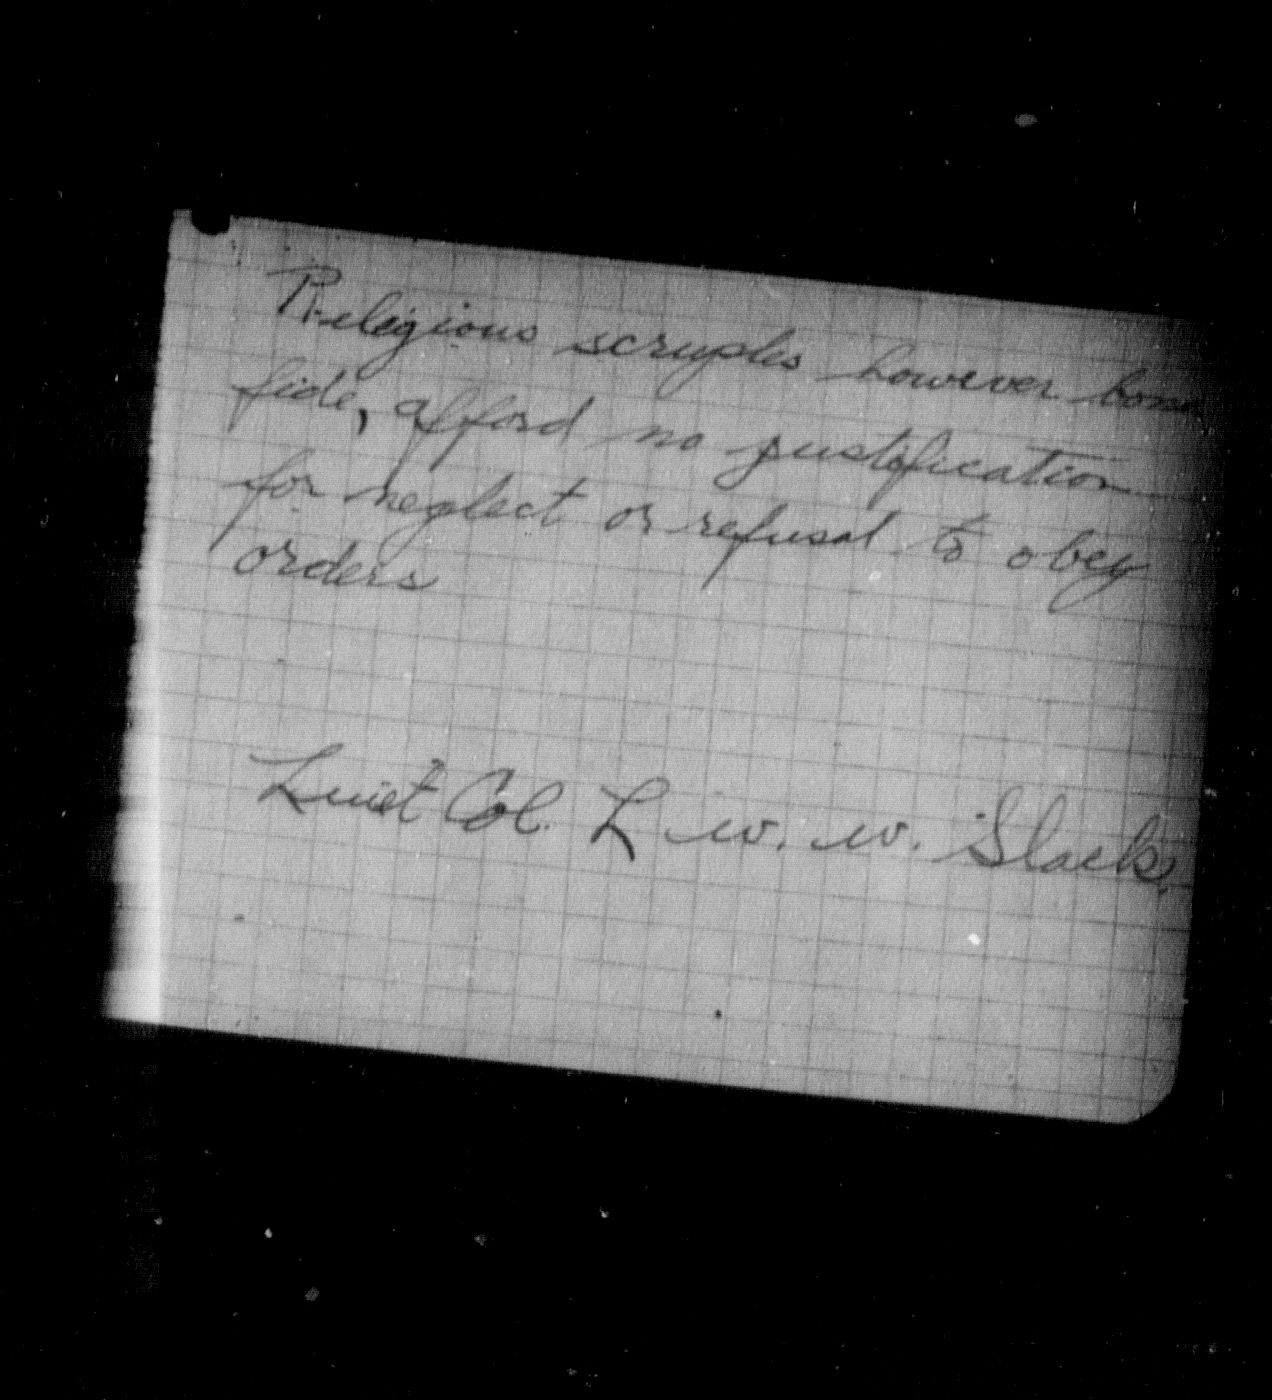 Religious scruples however bona
fide, afford no justification
for neglect or refusal to obey
orders
Luiet Col. L w. w. Slack.